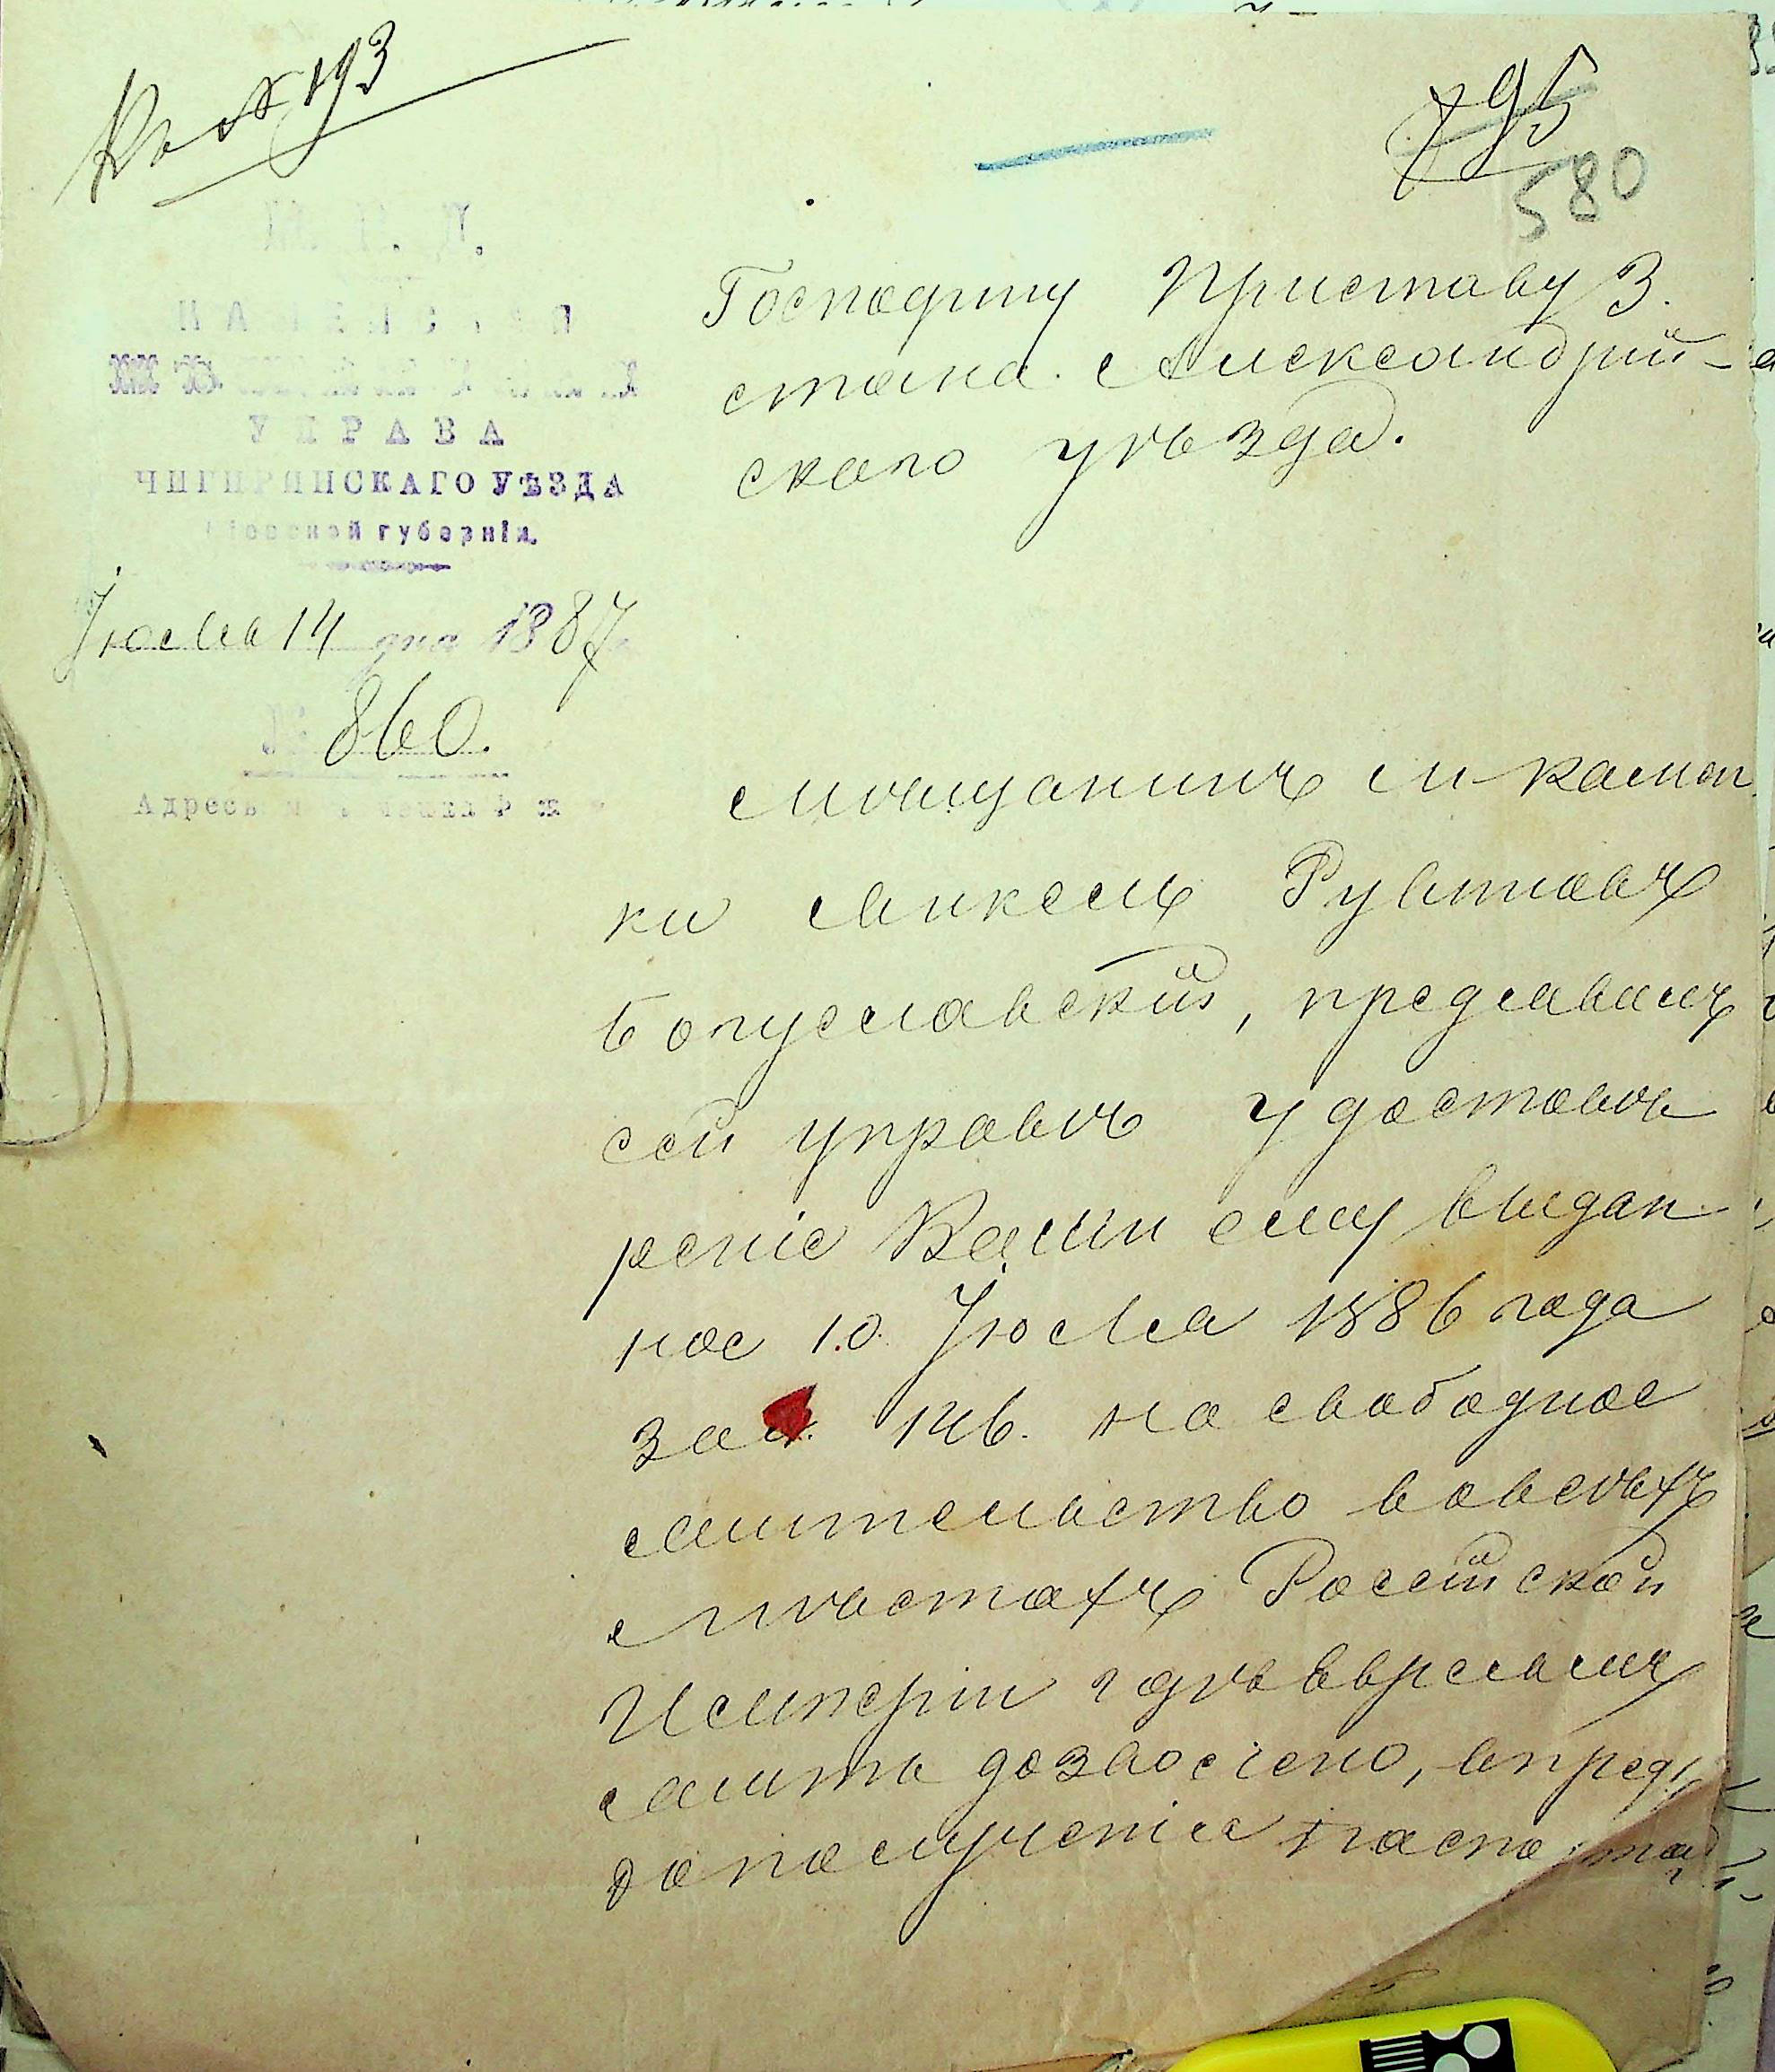 Къ № 193
795
580
М. В. Д.
КАМЕНСКАЯ
МѢЩАНСКАЯ
УПРАВА
ЧИГИРИНСКАГО УѢЗДА
Кіевской губерніи.
Іюля 14 дня 1887 г.
№ 860.
Адресъ
Господину Приставу 3.
стана Александрій-
скаго уѣзда.
Мѣщанинъ м. Камен
ки Микель Рувиновъ
Богуславский, предъявилъ
сей управѣ удостовѣ
реніе Вами ему выдан
ное 10. Іюля 1886 года
за № 146. на свободное
жительство вовсѣхъ
мѣстахъ Россійской
Имперіи гдѣ Евреямъ
жить дозволено, впредь
до полученія паспорта